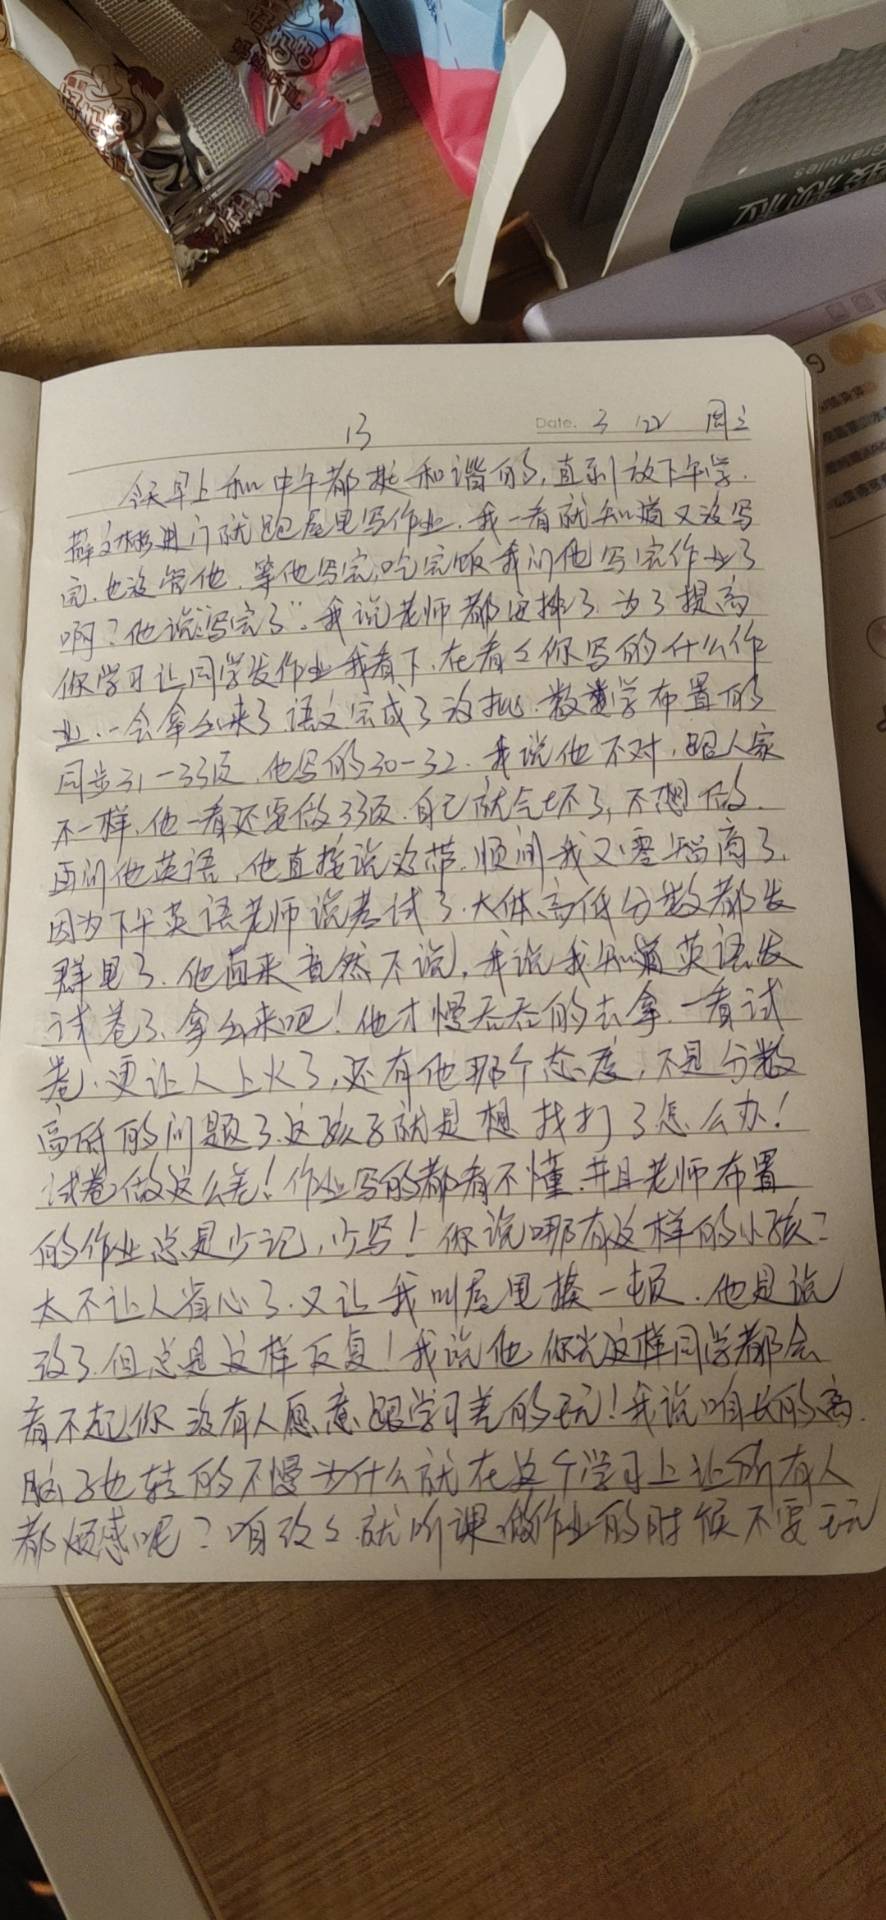 Granules
13
Date. 3 /22 周三
今天早上和中午都挺和谐的,直到放下午学.
进门就跑屋里写作业.我一看就知道又没写
完.也没管他.等他写完,吃完饭我问他写完作业了
啊?他说“写完了”.我说老师都安排了.为了提高
你学习让同学发作业我看下.在看看你写的什么作
业.一会拿出来了语文完成了没批.数学布置的
同步31-33页.他写的30-32.我说他不对,跟人家
不一样.他一看还要做33页.自己就气坏了,不想做.
再问他英语,他直接说没带.顺间我又要上高了.
因为下午英语老师说考试了.大体高低分数都发
群里了.他回来竟然不说,我说我知道英语发
试卷了、拿出来吧!他才慢吞吞的去拿.一看试
卷.更让人上火了,还有他那个态度,不是分数
高低的问题了.这孩子就是想找打了怎么办!
试卷做这么差!作业写的都看不懂.并且老师布置
的作业总是少记,少写!你说哪有这样的小孩?
太不让人省心了.又让我叫屋里揍一顿.他是说
改了.但总是这样反复!我说他你光这样同学都会
看不起你没有人愿意跟学习差的玩!我说咱长的高.
脑子也转的不慢为什么就在这个学习上让所有人
都烦感呢?咱改改.就听课做作业的时候不要玩